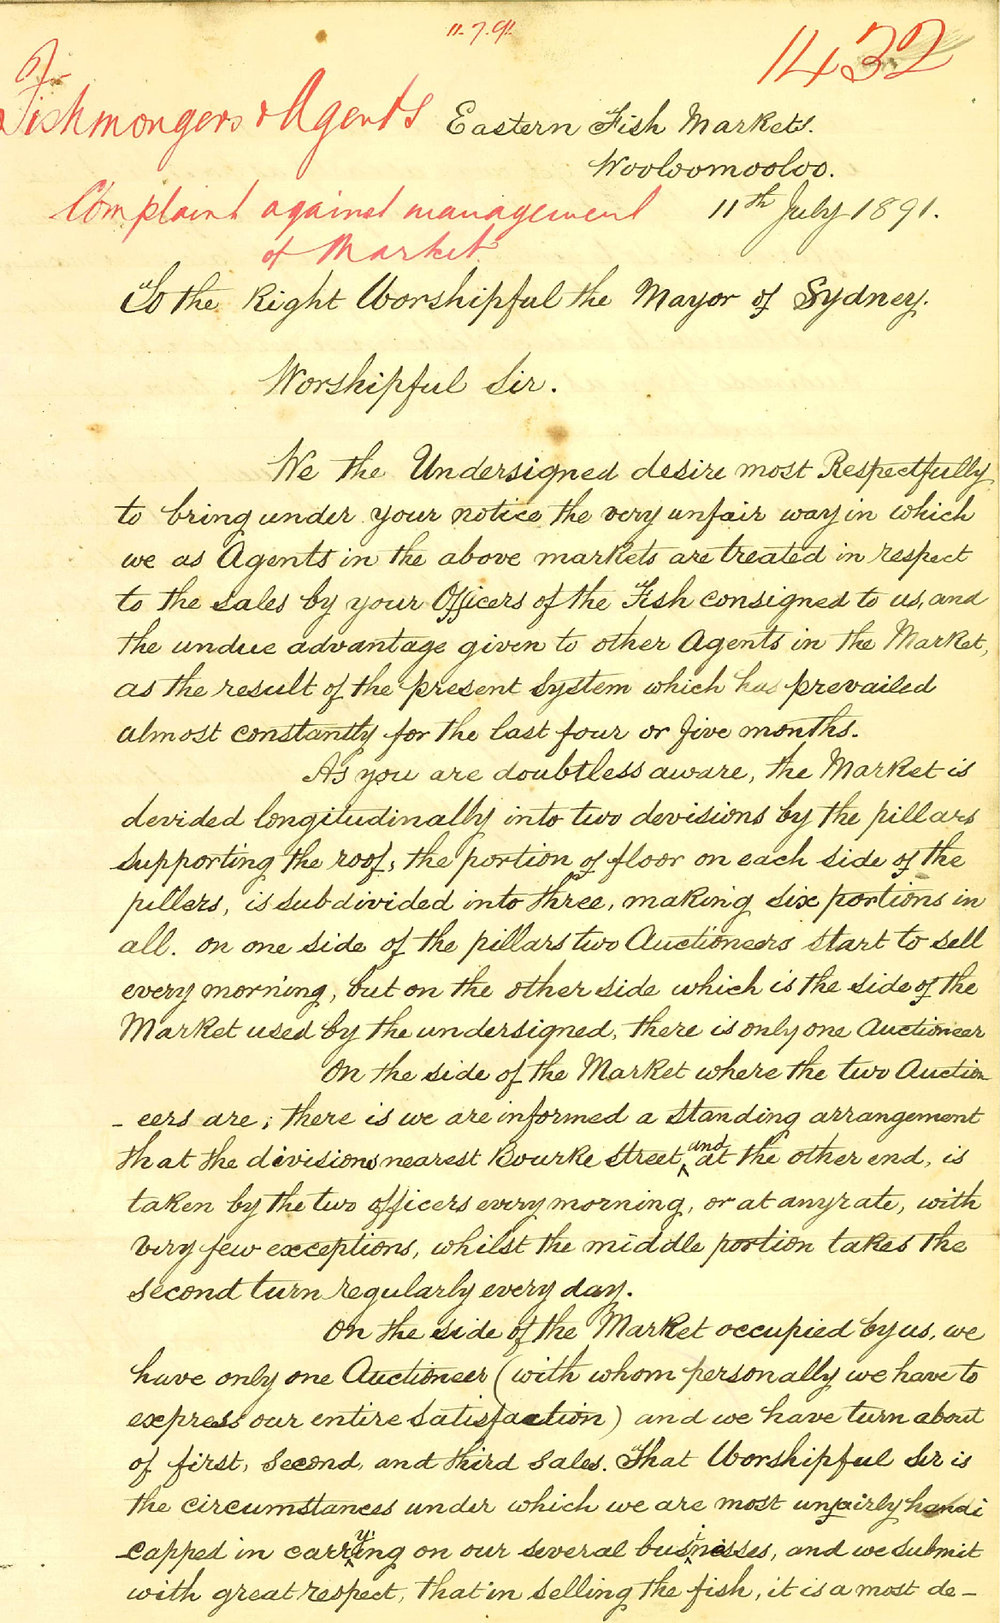 11.7.91
1432
Fishmongers & Agents
Eastern Fish Markets.
Wooloomooloo.
Complaint against management
of Market
11th July 1891.
To the Right Worshipful the Mayor of Sydney.
Worshipful Sir.
We the Undersigned desire most Respectfully
to bring under your notice the very unfair way in which
we as Agents in the above markets are treated in respect
to the sales by your Officers of the Fish consigned to us, and
the undue advantage given to other Agents in the Market,
as the result of the present System which has prevailed
almost constantly for the last four or five months.
As you are doubtless aware, the Market is
devided longitudinally into two devisions by the pillars
supporting the roof; the portion of floor on each side of the
pillers, is subdivided into three, making six portions in
all. on one side of the pillars two Auctioneers start to sell
every morning, but on the other side which is the side of the
Market used by the undersigned, there is only one Auctioneer
On the side of the Market where the two Auction
- eers are; there is we are informed a standing arrangement
that the divisions nearest Bourke Street, and at the other end, is
taken by the two officers every morning, or at anyrate, with
very few exceptions, whilst the middle portion takes the
second turn regularly every day.
On the side of the Market occupied by us, we
have only one Auctioneer (with whom personally we have to
express our entire satisfaction) and we have turn about
of first, second, and third sales. That Worshipful Sir is
the circumstances under which we are most unfairly handi
-capped in carrying on our several businesses, and we submit
with great respect, that in selling the fish, it is a most de-